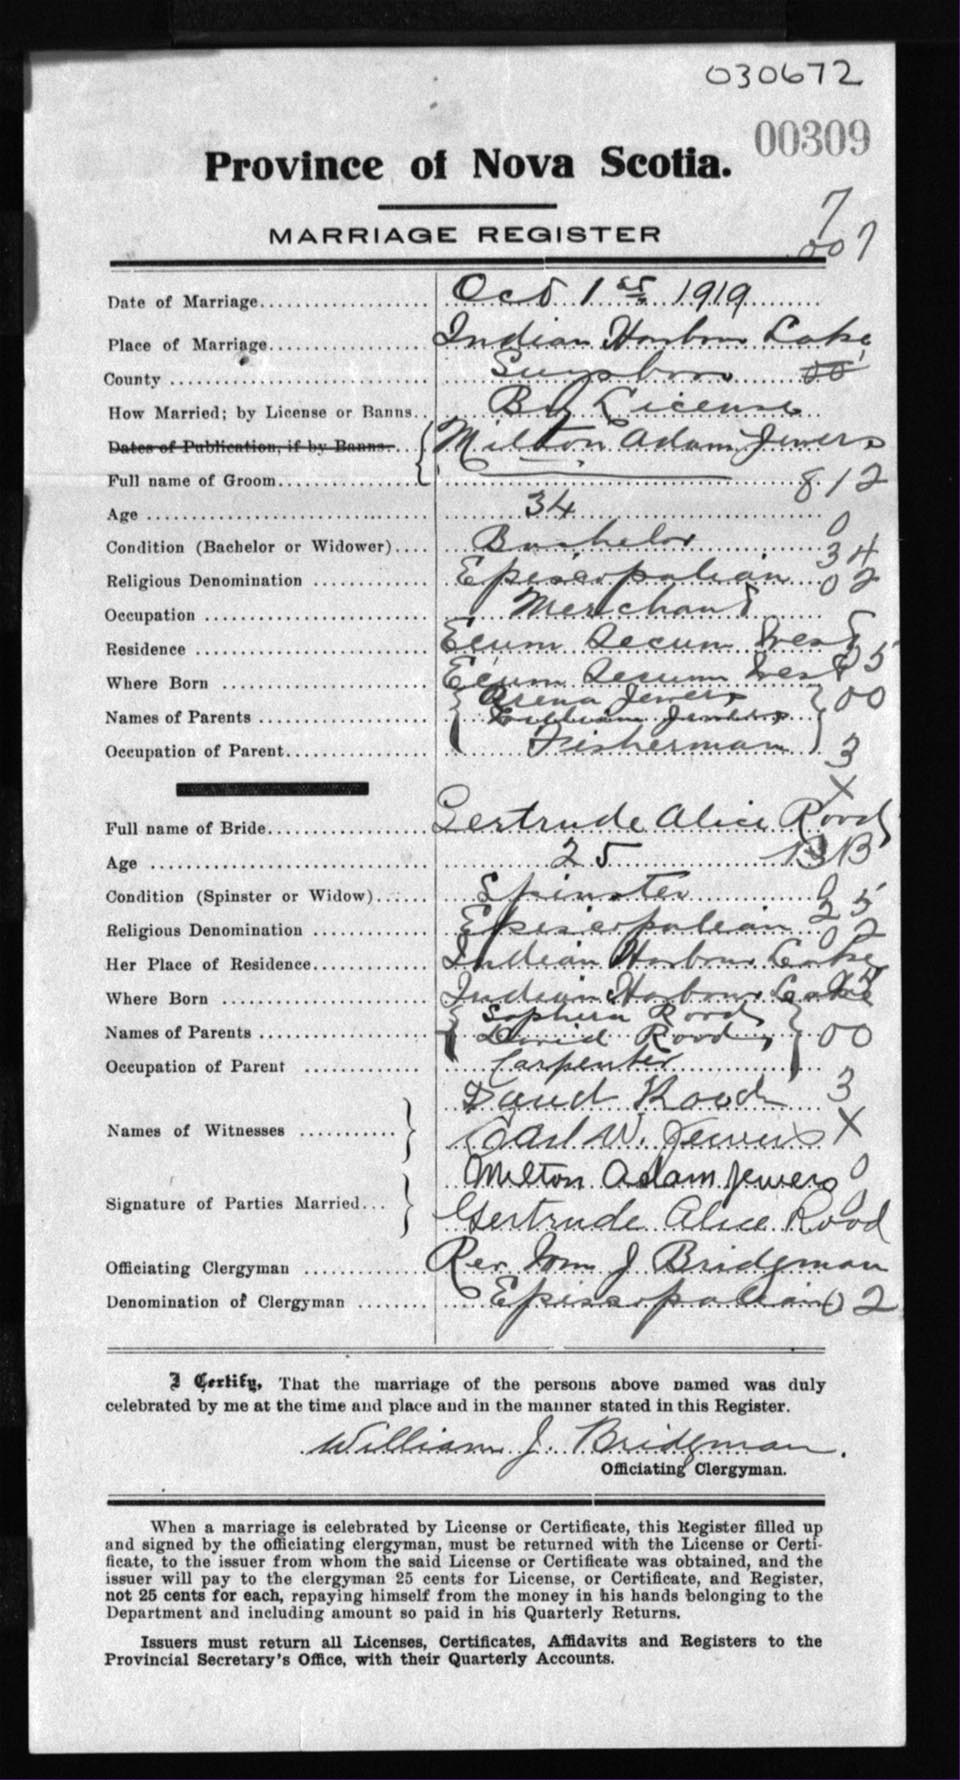 030672
00309
Province of Nova Scotia.
7
MARRIAGE REGISTER
007
Date of Marriage Oct 1st 1919
Place of Marriage Indian Harbour Lake
County Guysboro 00
How Married; by License or Banns By License
Dates of Publication, if by Banns
Full name of Groom Milton Adam Jewers
812
Age 34
0
Condition (Bachelor or Widower) Bachelor
34
Religious Denomination Episcopalian 02
Occupation Merchant
Residence Ecum Secum West
Where Born Ecum Secum West 25
Names of Parents Arena Jewers 00
William Jewers
Occupation of Parent Fisherman
3
X
Full name of Bride Gertrude Alice Rood
Age 25 1313
Condition (Spinster or Widow) Spinster 0
25
Religious Denomination Episcopalian 02
Her Place of Residence Indian Harbour Lake
Where Born Indian Harbour Lake
Names of Parents Sophera Rood
David Rood 00
Occupation of Parent Carpenter
3
Names of Witnesses David Rood
Carl W. Jewers X
Signature of Parties Married Milton Adam Jewers 0
Gertrude Alice Rood 0
Officiating Clergyman Rev Wm J Bridgman
Denomination of Clergyman Episcopalian 02
I Certify, That the marriage of the persons above named was duly
celebrated by me at the time and place and in the manner stated in this Register.
William J. Bridgman.
Officiating Clergyman.
When a marriage is celebrated by License or Certificate, this Register filled up
and signed by the officiating clergyman, must be returned with the License or Certi-
ficate, to the issuer from whom the said License or Certificate was obtained, and the
issuer will pay to the clergyman 25 cents for License, or Certificate, and Register,
not 25 cents for each, repaying himself from the money in his hands belonging to the
Department and including amount so paid in his Quarterly Returns.
Issuers must return all Licenses, Certificates, Affidavits and Registers to the
Provincial Secretary's Office, with their Quarterly Accounts.